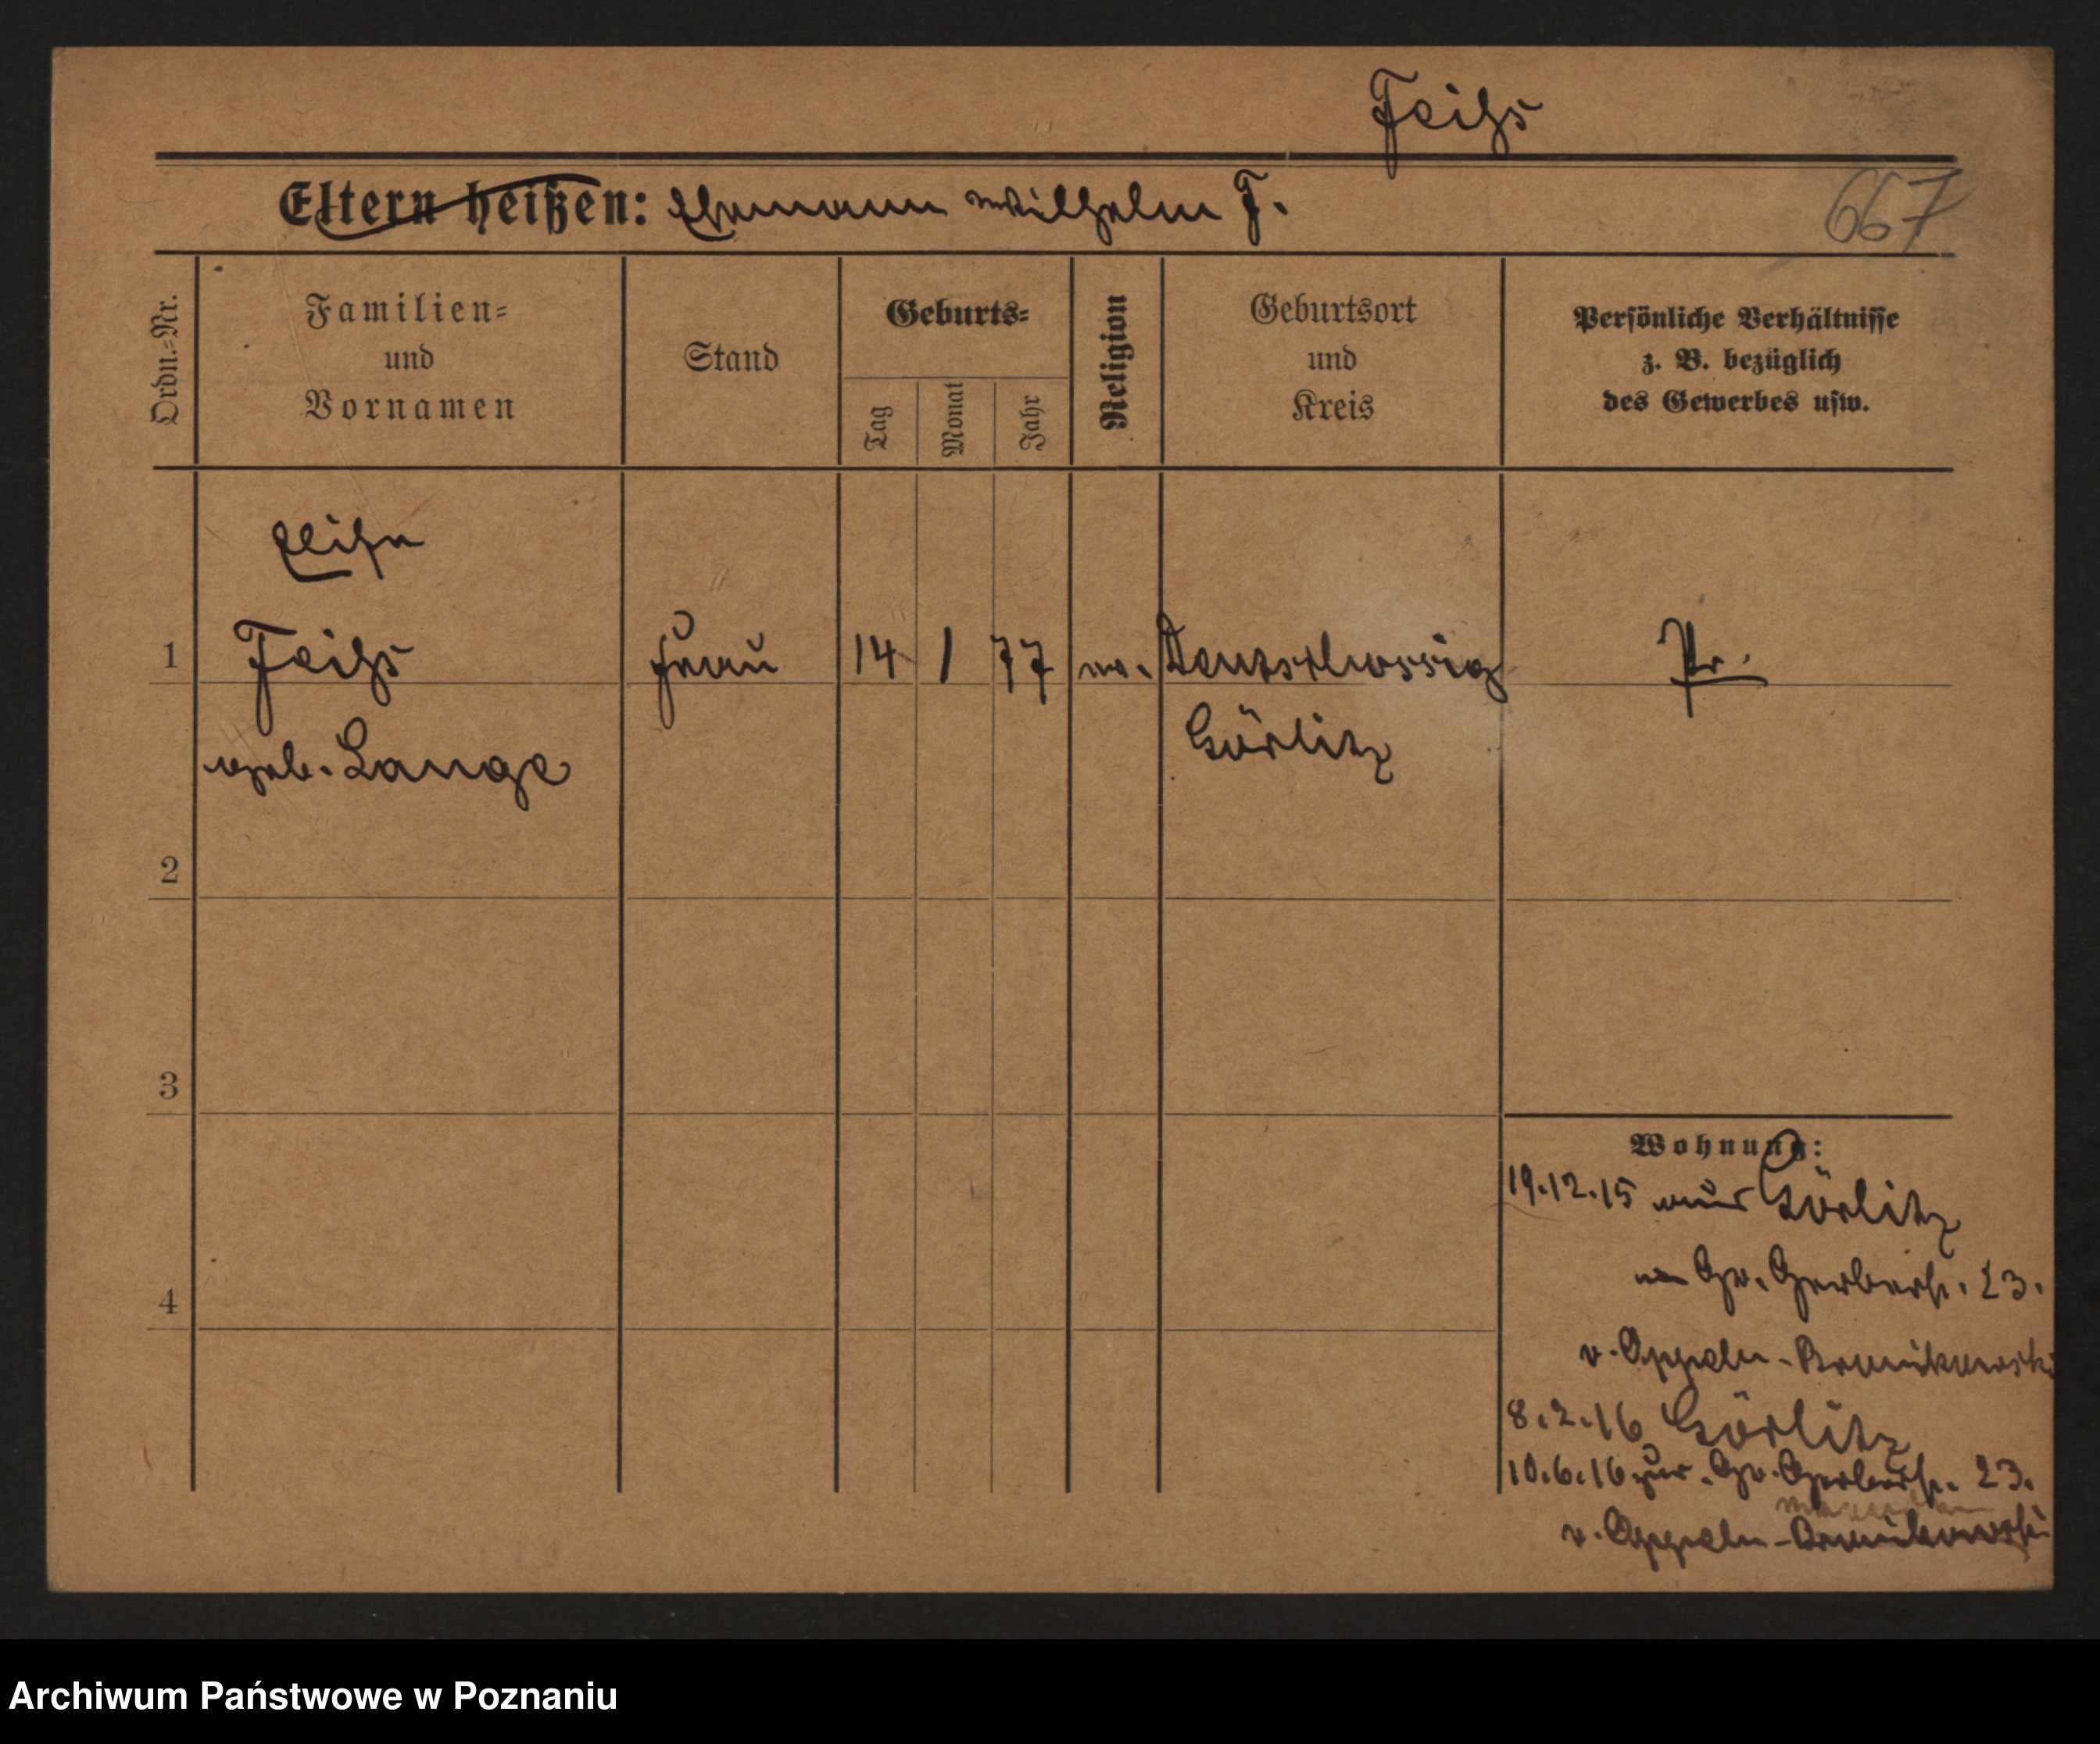 Feihs
Eltern heißen: Ehemann Wilhelm F.
667
Ordn.=Nr.
Familien=
und
Vornamen
Stand
Geburts=
Tag
Monat
Jahr
Religion
Geburtsort
und
Kreis
Persönliche Verhältnisse
z. B. bezüglich
des Gewerbes usw.
1 Feihs Frau 14 1 77 ev. Deutschossig Pr.
geb. Lange Görlitz
2
3
4
Wohnung:
19.12.15 aus Görlitz
Gr. Gerberstr. 23.
v. Oppeln-Bronikowski
8.2.16 Görlitz
10.6.16 zur. Gr. Gerberstr. 23.
v. Oppeln-Bronikowski
Archiwum Państwowe w Poznaniu